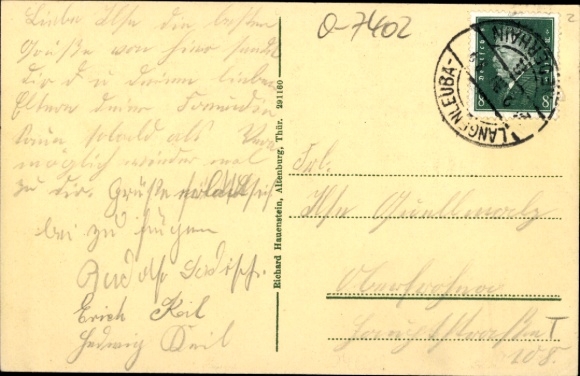 Liebe Ilse die besten
Grüße von hier sendet
dir d u deinen lieben
Eltern deine Freundin
komme sobald als
möglich wieder mal
zu dir. Grüße
bei zu fügen
Erich Keil
Hedwig Keil
Richard Hauenstein, Altenburg, Thür. 291160
O-7402
LANGENLEUBA-
NIEDERHAIN
Deutsches Reich
8 8
Frl.
Ilse Quellmalz
Oberfrohna
Hauptstraße
108.